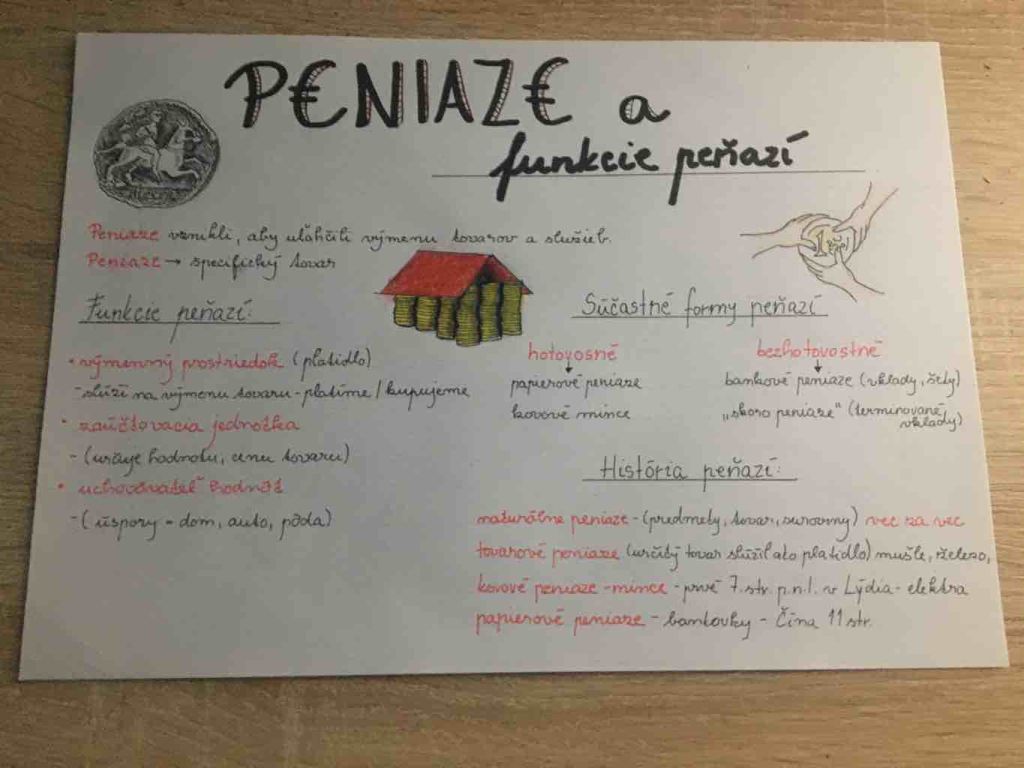 P€NIAZ€ a
funkcie peňazí
Peniaze vznikli, aby uľahčili výmenu tovarov a služieb.
Peniaze → špecifický tovar
Funkcie peňazí:
• výmenný prostriedok (platidlo)
- slúži na výmenu tovaru - platíme / kupujeme
• zaúčtovacia jednotka
- (určuje hodnotu, cenu tovaru)
• uchovávateľ hodnôt
- (úspory - dom, auto, pôda)
Súčastné formy peňazí
hotovosné
papierové peniaze
kovové mince
bezhotovostné
bankové peniaze (vklady, šeky)
„skoro peniaze" (terminované
vklady)
História peňazí:
naturálne peniaze - (predmety, tovar, suroviny) vec za vec
tovarové peniaze (určitý tovar slúžil ako platidlo) mušle, železo,
kovové peniaze - mince - prvé 7. str. p.n.l. v Lýdia - elektra
papierové peniaze - bankovky - Čína 11 str.